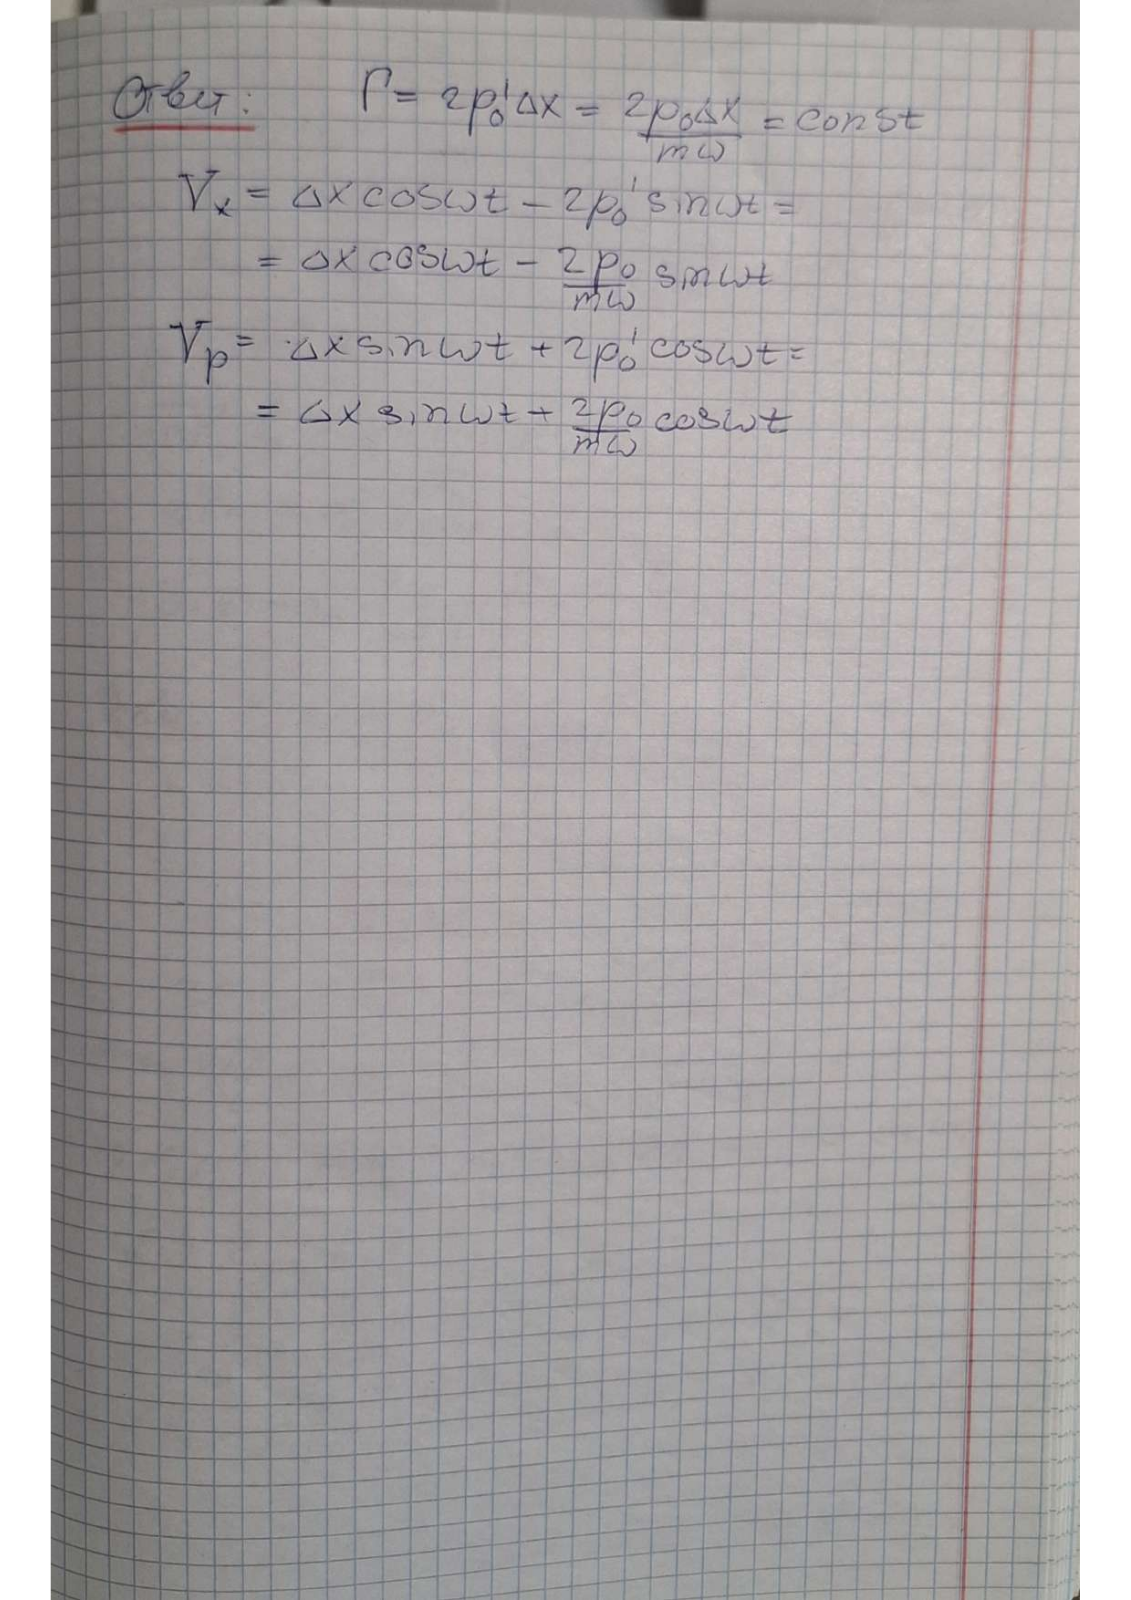 Ответ: Γ = 2p₀'Δx = 2p₀Δx/mω = const
Vₓ = Δx cosωt − 2p₀' sinωt =
= Δx cosωt − 2p₀/mω sinωt
Vₚ = Δx sinωt + 2p₀' cosωt =
= Δx sinωt + 2p₀/mω cosωt